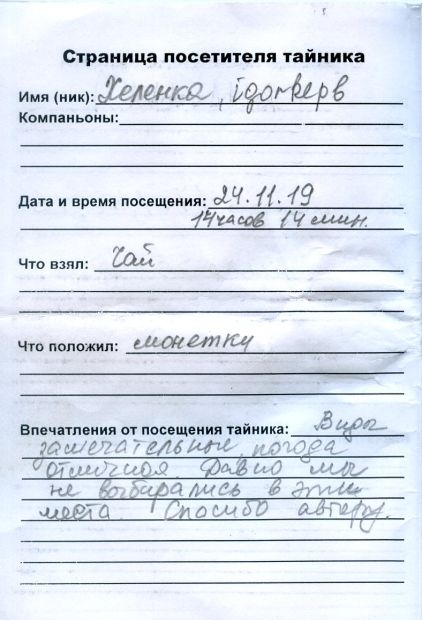 Страница посетителя тайника
Имя (ник): Хеленка, igorкерв
Компаньоны:
Дата и время посещения: 24.11.19
14 часов 14 мин.
Что взял: Чай
Что положил: монетку
Впечатления от посещения тайника: Виды
замечательные, погода
отличная. Давно мы
не выбирались в эти
места. Спасибо автору.